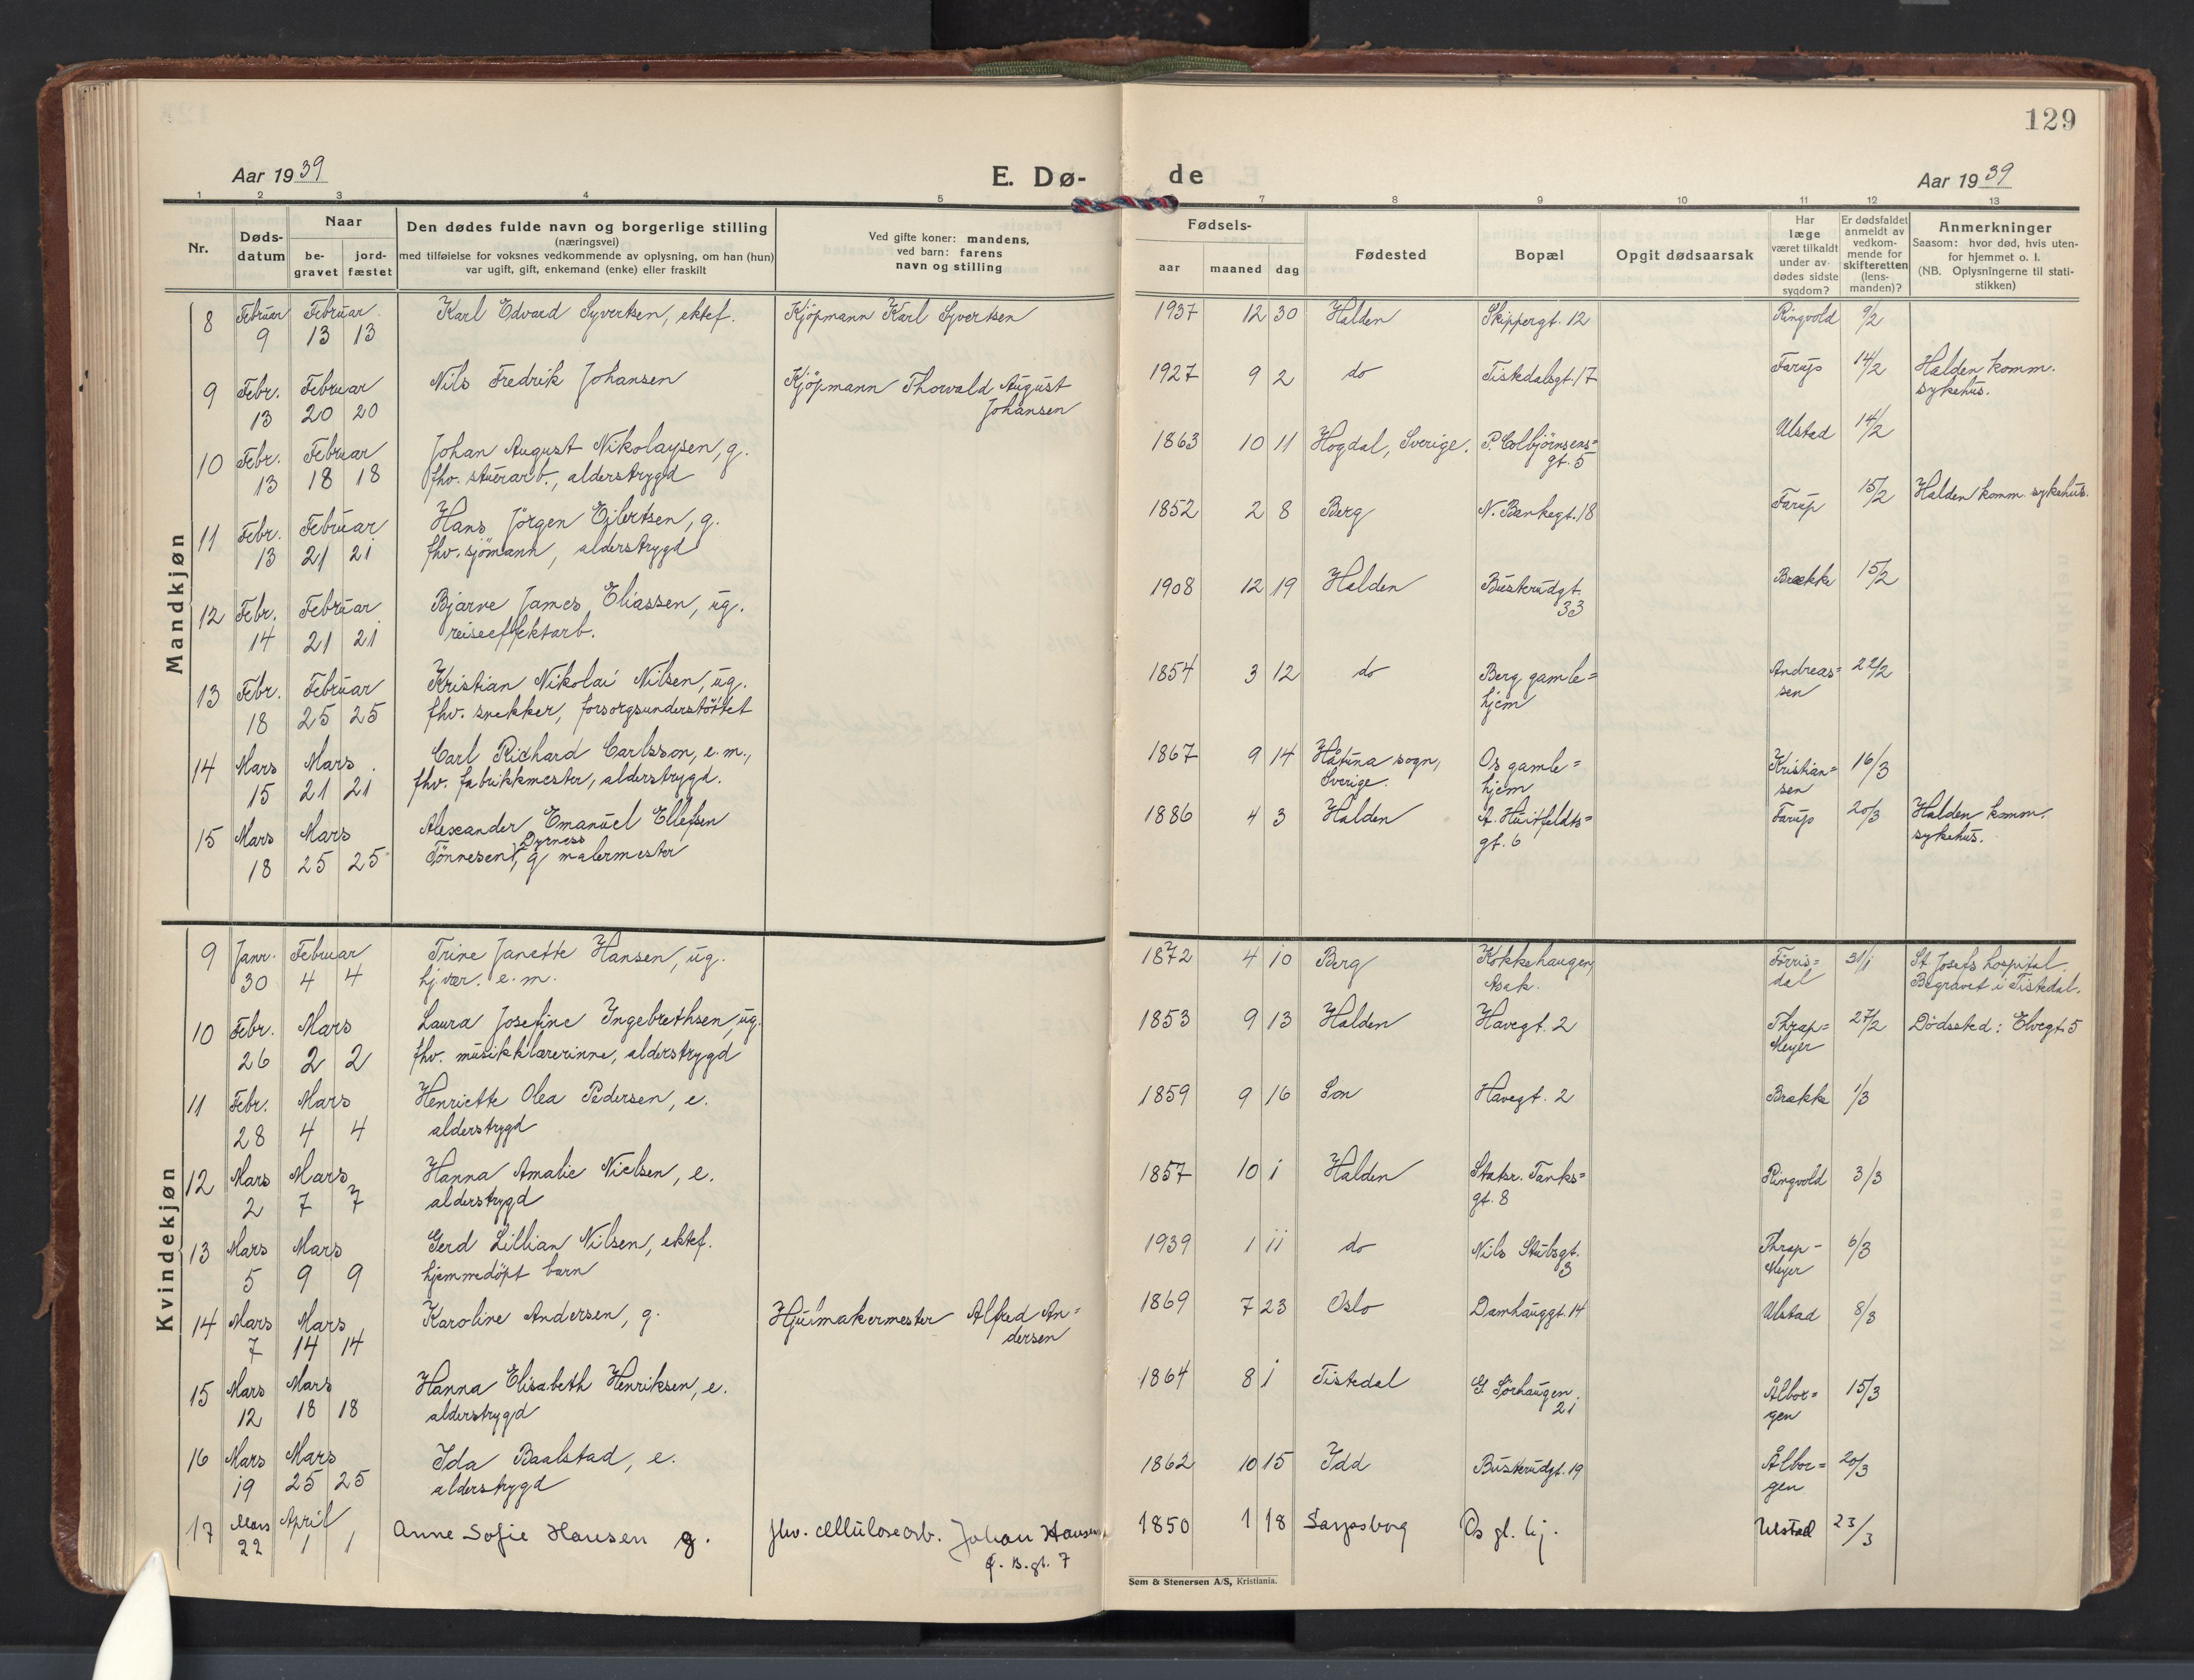 129
Aar 1939
E. Dø-
de
Aar 1939
1 2 3 4 5 7 8 9 10 11 12 13
Nr.
Døds-
datum
Naar
be-
gravet
jord-
fæstet
Den dødes fulde navn og borgerlige stilling
(næringsvei)
med tilføielse for voksnes vedkommende av oplysning, om han (hun)
var ugift, gift, enkemand (enke) eller fraskilt
Ved gifte koner: mandens,
ved barn: farens
navn og stilling
Fødsels-
aar maaned dag
Fødested
Bopæl
Opgit dødsaarsak
Har
læge
været tilkaldt
under av-
dødes sidste
sygdom?
Er dødsfaldet
anmeldt av
vedkom-
mende for
skifteretten
(lens-
manden)?
Anmerkninger
Saasom: hvor død, hvis uten-
for hjemmet o. l.
(NB. Oplysningerne til stati-
stikken)
Mandkjøn
8 Februar Februar Karl Edvard Syvertsen, ektef. Kjöpmann Karl Syvertsen 1937 12 30 Halden Skippergt. 12 Ringvold 9/2
9 13 13
9 Febr. Februar Nils Fredrik Johansen Kjöpmann Thorvald August 1927 9 2 do Tistedalsgt. 17 Farup 14/2 Halden komm.
13 20 20 Johansen sykehus.
10 Febr. Februar Johan August Nikolaysen, g. 1863 10 11 Hogdal, Sverige. P. Colbjörnsens= Ulstad 14/2
13 18 18 fhv. stuerarb., alderstrygd gt. 5
11 Febr. Februar Hans Jörgen Eilertsen, g. 1852 2 8 Berg N. Bankegt. 18 Farup 15/2 Halden komm. sykehus.
13 21 21 fhv. sjömann, alderstrygd
12 Febr. Februar Bjarne James Eliassen, ug. 1908 12 19 Halden Busterudgt. Brække 15/2
14 21 21 reiseeffektarb. 33
13 Febr. Februar Kristian Nikolai Nilsen, ug. 1854 3 12 do Berg gamle= Andreas= 22/2
18 25 25 fhv. snekker, forsorgsunderstöttet hjem sen
14 Mars Mars Carl Richard Carlsson, e. m., 1867 9 14 Håtuna sogn, Os gamle= Kristian= 16/3
15 21 21 fhv. fabrikkmester, alderstrygd. Sverige. hjem sen
15 Mars Mars Alexander Emanuel Ellefsen 1886 4 3 Halden A. Huitfeldts= Farup 20/3 Halden komm.
Dyrness
18 25 25 Tönnesen, g malermester gt. 6 sykehus.
Kvindekjøn
9 Janr. Februar Trine Janette Hansen, ug. 1872 4 10 Berg Kokkehaugen, Förris= 31/1 St. Josefs hospital.
30 4 4 hj. vær. e. m. Asak. dal Begravet i Tistedal.
10 Febr. Mars Laura Josefine Ingebrethsen, ug. 1853 9 13 Halden Havegt. 2 Thrap= 27/2 Dödssted: Elvegt. 5
26 2 2 fhv. musikklærerinne, alderstrygd Meyer
11 Febr. Mars Henriette Olea Pedersen, e. 1859 9 16 Son Havegt. 2 Brække 1/3
28 4 4 alderstrygd
12 Mars Mars Hanna Amalie Nielsen, e. 1857 10 1 Halden Statsr. Tanks= Ringvold 3/3
2 7 7 alderstrygd gt. 8
13 Mars Mars Gerd Lillian Nilsen, ektef. 1939 1 11 do Nils Stubsgt. Thrap- 6/3
5 9 9 hjemmedöpt barn 3 Meyer
14 Mars Mars Karoline Andersen, g. Hjulmakermester Alfred An= 1869 7 23 Oslo Damhauggt. 14 Ulstad 8/3
7 14 14 dersen
15 Mars Mars Hanna Elisabeth Henriksen, e. 1864 8 1 Tistedal G. Sörhaugen. Ålbor= 15/3
12 18 18 alderstrygd 21 gen
16 Mars Mars Ida Baalstad, e. 1862 10 15 Idd Busterudgt. 19 Ålbor= 20/3
19 25 25 alderstrygd gen
17 Mars April Anne Sofie Hansen g. fhv. cellulosearb. Johan Hansen 1850 1 18 Sarpsborg Os gl. hj. Ulstad 23/3
22 1 1 B. gt. 7
Sem & Stenersen A/S, Kristiania.